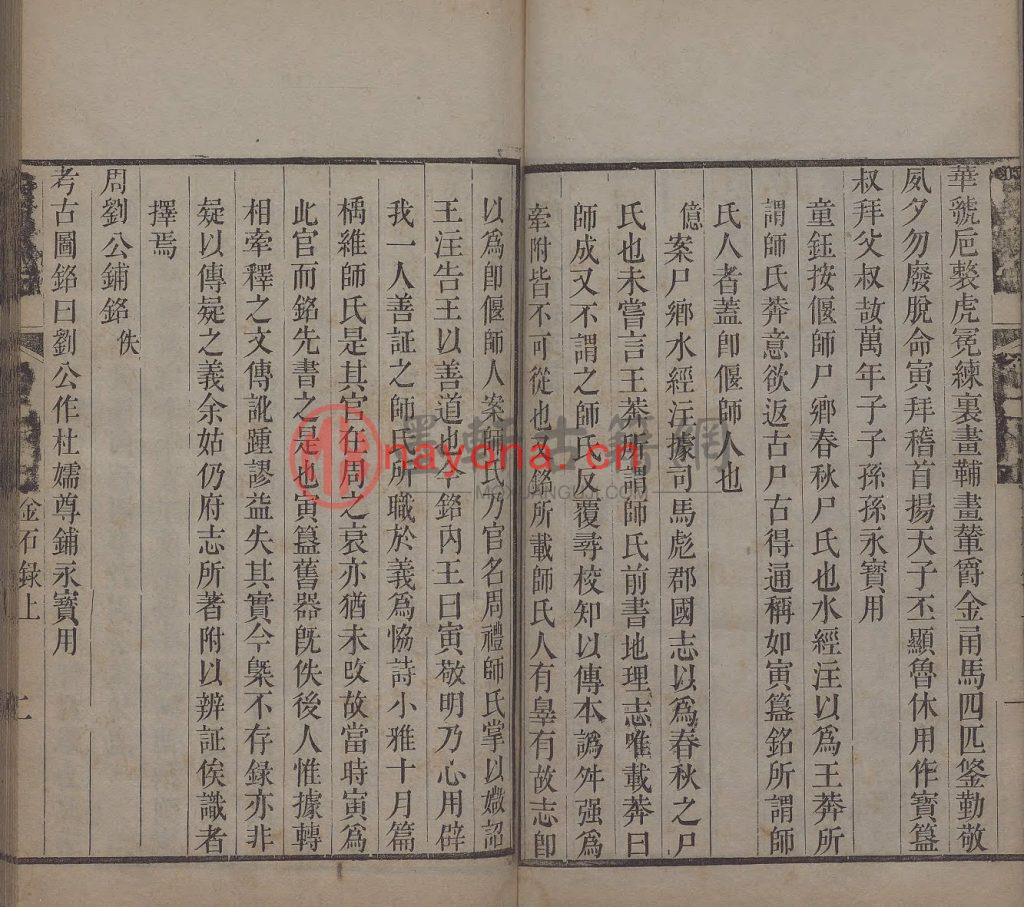 華虢㔾䙝虎冕練裏畫䩉畫𨍏爵金甬馬四匹鋚勒敬
夙夕勿廢朕命寅拜稽首揚天子丕顯魯休用作寶簋
叔拜父叔故萬年子子孫孫永寶用
童鈺按偃師尸鄉春秋尸氏也水經注以爲王莽所
謂師氏莽意欲返古尸古得通稱如寅簋銘所謂師
氏人者蓋即偃師人也
億案尸鄉水經注據司馬彪郡國志以爲春秋之尸
氏也未嘗言王莽所謂師氏前書地理志唯載莽曰
師成又不謂之師氏反覆尋校知以傳本譌舛强爲
牽附皆不可從也又銘所載師氏人有辠有故志即
以爲即偃師人案師氏乃官名周禮師氏掌以媺詔
王注告王以善道也今銘內王曰寅敬明乃心用辟
我一人善証之師氏所職於義爲恊詩小雅十月篇
楀維師氏是其官在周之衰亦猶未攺故當時寅爲
此官而銘先書之是也寅簋舊器旣佚後人惟據轉
相牽釋之文傳訛踵謬益失其實今槩不存録亦非
疑以傳疑之義余姑仍府志所著附以辨証俟識者
擇焉
周劉公鋪銘 佚
考古圖銘曰劉公作杜嬬尊鋪永寶用
金石録上
二
墨軒古籍網
MOXUANGUJI.COM
nayona.cn